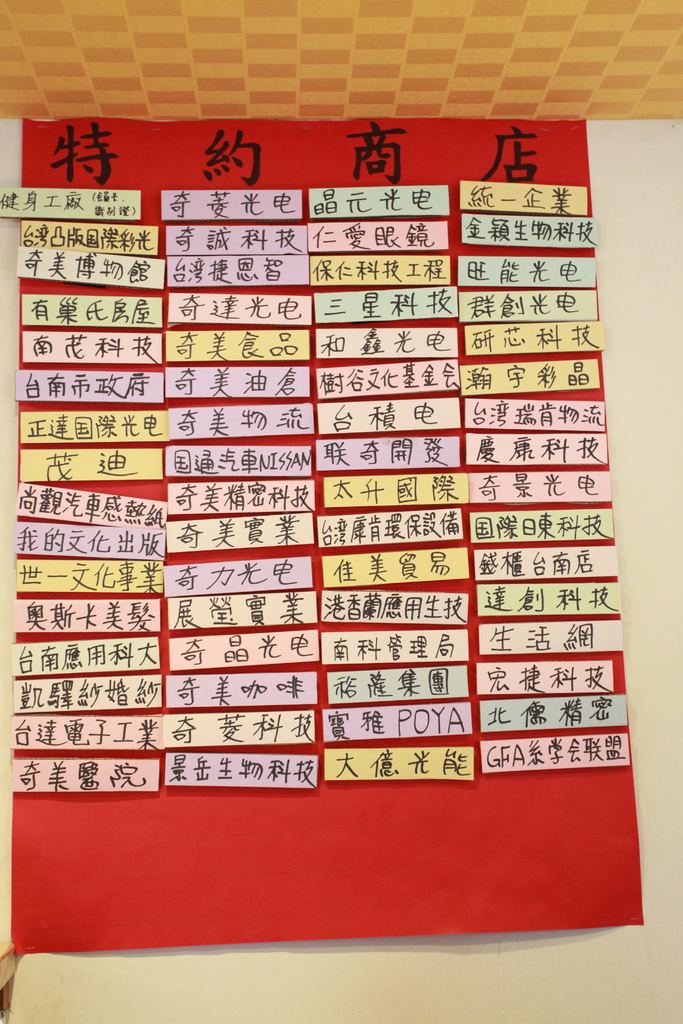 特約商店
健身工廠
台湾凸版国際彩光
奇美博物館
有巢氏房屋
南茂科技
台南市政府
正達国際光电
茂迪
尚觀汽車感熱紙
我的文化出版
世一文化事業
奧斯卡美髮
台南應用科大
凱驛紗婚紗
台達電子工業
奇美醫院
奇菱光电
奇誠科技
台湾捷恩智
奇達光电
奇美食品
奇美油倉
奇美物流
国通汽車NISSAN
奇美精密科技
奇美實業
奇力光电
展瑩實業
奇晶光电
奇美咖啡
奇菱科技
景岳生物科技
晶元光电
仁愛眼鏡
保仁科技工程
三星科技
和鑫光电
樹谷文化基金会
台積电
联奇開發
太升國際
台湾庫肯環保設備
佳美貿易
港香蘭應用生技
南科管理局
裕隆集團
寶雅POYA
大億光能
統一企業
金穎生物科技
旺能光电
群創光电
研芯科技
瀚宇彩晶
台湾瑞肯物流
慶康科技
奇景光电
国際日東科技
鐵櫃台南店
達創科技
生活網
宏捷科技
北儒精密
GFA系学会联盟